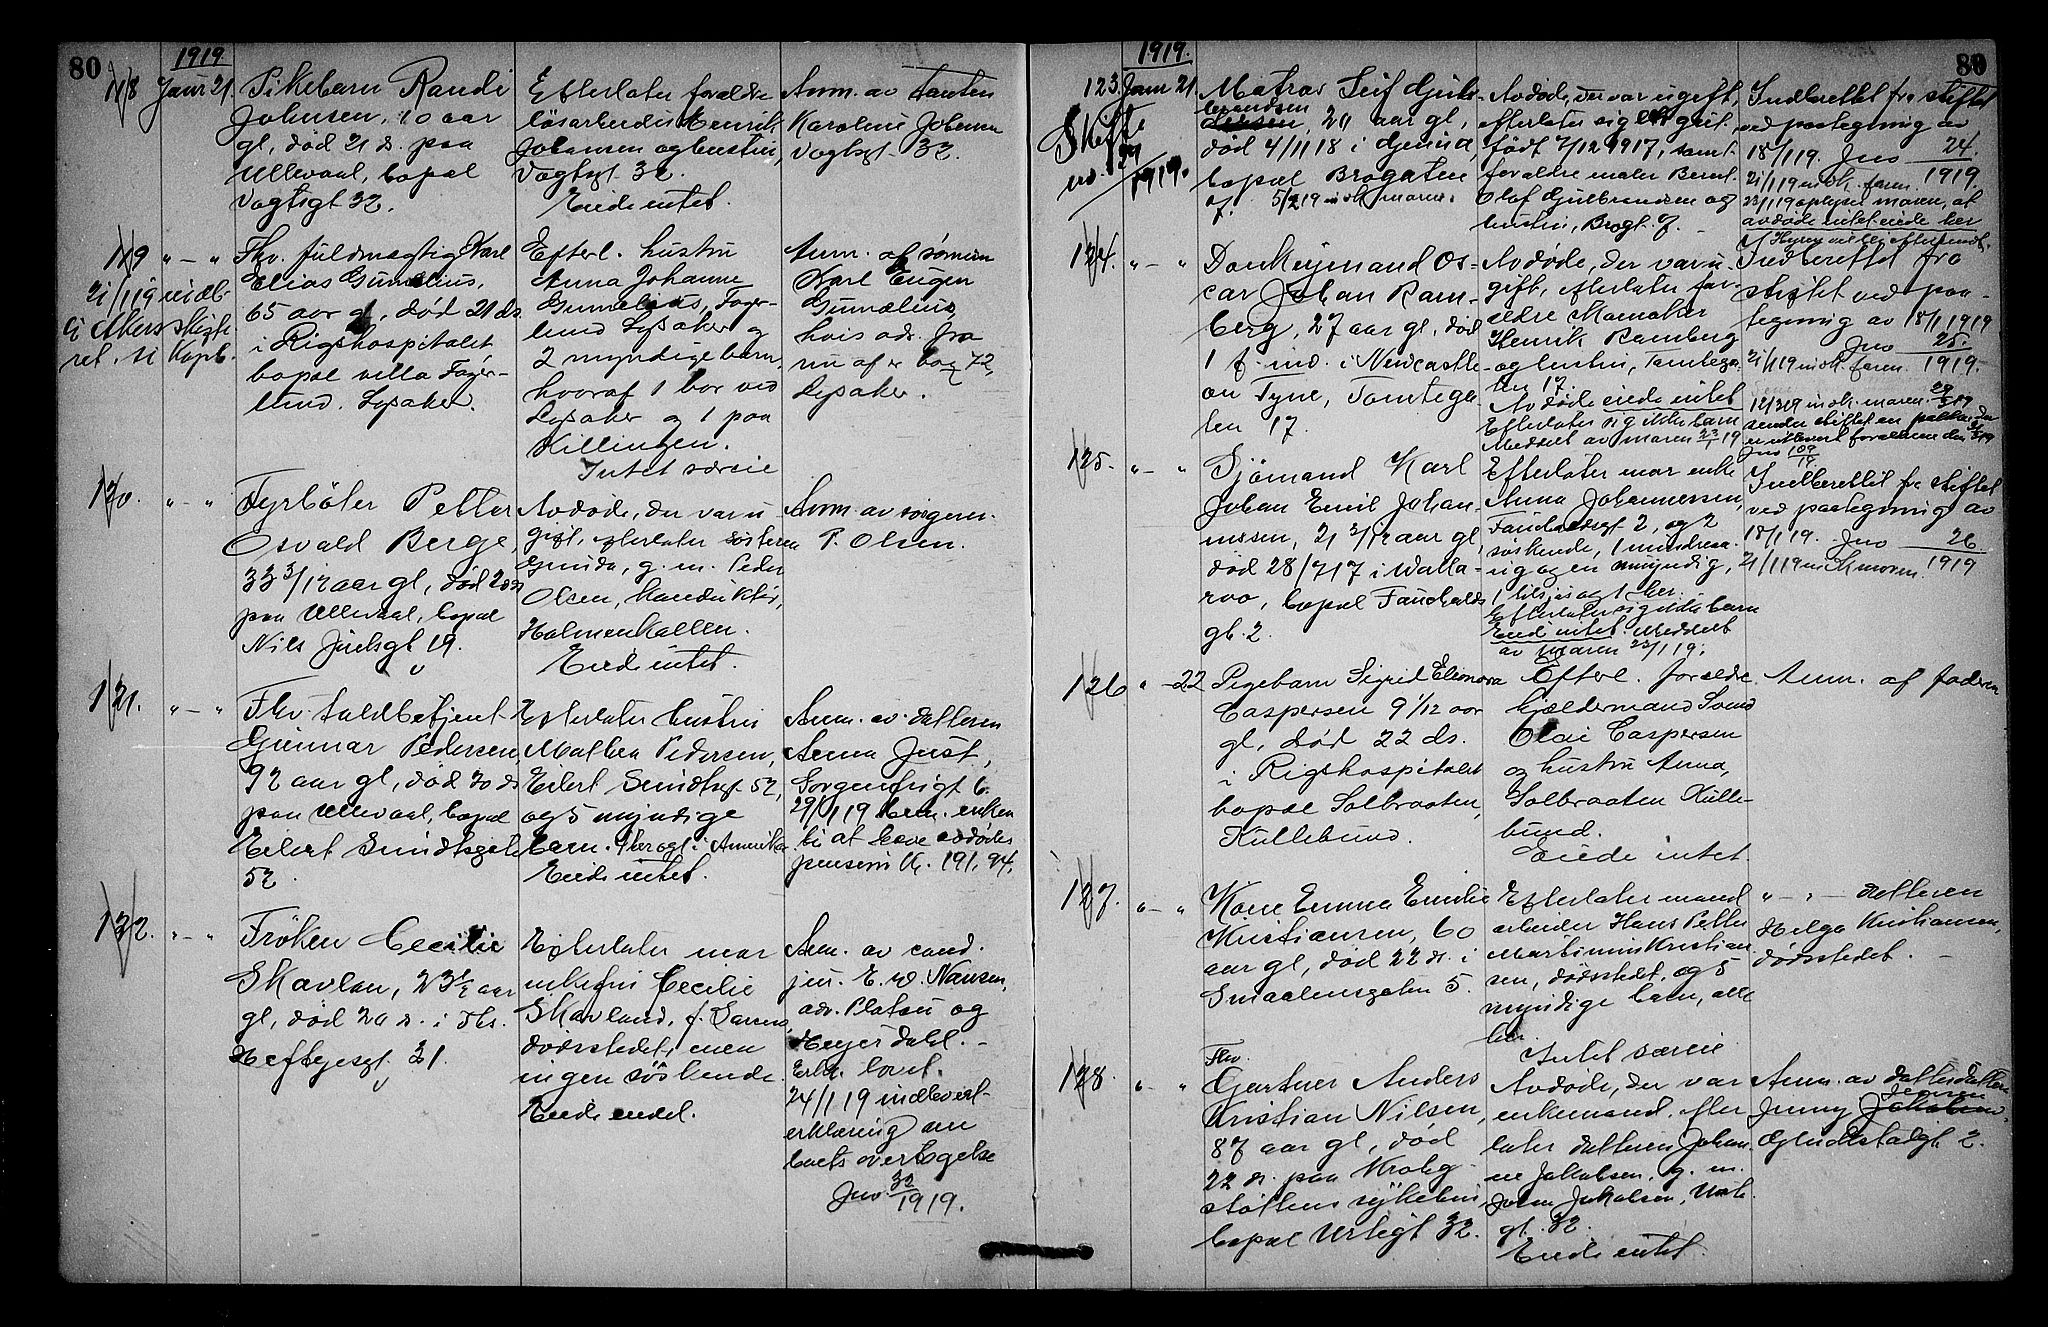 80
1919
118 Janr 21.
Pikebarn Randi
Johnsen, 10 aar
gl, død 21 ds. paa
Ullevaal, bopal
Vogtsgt 32.
Efterlater forældre
løsarbeider Henrik
Johansen og hustru,
Vogtsgt. 32.
Eiede intet.
Anm. av tanten
Karoline Johnsen
Vogtsgt. 32.
119 " - "
21/1 19 indb.
til Akers skifte-
ret, i Kopb.
Fhv. fuldmægtig Karl
Elias Gumælius,
65 aar gl, død 21 ds
i Rigshospitalet
bopæl villa Fager-
lund. Lysaker.
Efterl. hustru
Anna Johanne
Gumælius, Fager-
lund Lysaker og
2 myndige barn,
hvoraf 1 bor ved
Lysaker og 1 paa
Killingen.
Intet særeie
Anm. af sønnen
Karl Eugen
Gumælius,
hvis adr. fra
nu af er box 72,
Lysaker.
120. " - "
Fyrbøter Petter
Osvald Berge,
33 3/12 aar gl, død 20 ds
paa Ullevaal, bopæl
Nils Juelsgt 19.
Avdøde, der var u-
gift, efterlater søsteren
Gunda, g. m. Peder
Olsen, Konduktør,
Holmenkollen.
Eiede intet.
Anm. av svogeren
P. Olsen.
121. " - "
Fhv. toldbetjent
Gunnar Pedersen,
92 aar gl, død 20 ds
paa Ullevaal, bopæl
Eilert Sundtsgate
52.
Efterlater hustru
Mathea Pedersen,
Eilert Sundtsgt 52,
og 5 myndige
barn. 4 her og 1 i Amerika
Eiede intet.
Anm. av datteren
Anna Just,
Sorgenfrigt 6.
29/1 19 bem. enken
til at heve avdødes
pension Kr. 191.94.
122. " - "
Frøken Cecilie
Skavlan, 23 1/2 aar
gl, død 20 ds. i Ths.
Heftyesgt. 31.
Efterlater mor
enkefru Cecilie
Skavland, f. Larsens,
dødsstedet, men
ingen søskende.
Eiede endel.
Anm. av cand.
jur. E. W. Nansen,
adv. Platou og
Heyerdahl. -
Erkl. lovet.
24/1 19 indlevert
erklæring om
boets overtagelse
Jno. 32/1919.
80
1919.
123. Janr 21.
Skifte
no. 27/1919.
Matros Leif Gjul-
brandsen
20 aar gl,
død 4/11 18 i Genua,
bopæl Brogaten
7. 5/2 19 insk. moren.
Avdøde, der var ugift,
efterlater sig en gut.
født 7/12 1917, samt
forældre maler Bernt
Olaf Gjulbrandsen og
hustru, Brogt. 7.
Indberettet fra stiftet
ved paategning av
18/1 19. Jno 24./1919.
21/1 19 insk. faren.
23/1 19 oplyser moren, at
avdøde intet eiede her
Hyren vil bli eftersendt.
124. " - "
Donkeymand Os-
car Johan Ram-
berg, 27 aar gl, død
1 f. md. i Newcastle
on Tyne, Tomtega-
ten 17.
Avdøde, der var u-
gift, efterlater for-
ældre Skomaker
Henrik Ramberg
og hustru, Tomtega-
ten 17.
Avdøde eiede intet
Efterlater sig ikke barn
Meddelt av moren 23/1 19
Indberettet fra
stiftet ved paa-
tegning av 18/1 1919
Jno 25./1919.
21/1 19 insk. faren.
12/3 19 insk. moren.
sender stiftet en pakke, der
er utlevert forældrene den
Jno 109/19
125. " - "
Sjømand Karl
Johan Emil Johan-
nessen, 21 3/12 aar gl,
død 28/7 17 i Walla-
roo, bopæl Fauchalds
gt. 2.
Efterlater mor enke
Anna Johannessen,
Fauchaldsgt 2, og 2
søskende, 1 mindreaa-
rig og en myndig,
1 tilsjøs og 1 her.
Efterlater sig ikke barn
Eied intet. Meddelt
av moren 23/1 19.
Indberettet fra stiftet
ved paategning av
18/1 19. Jno 26/1919
21/1 19 insk moren.
126 " - 22
Pigebarn Sigrid Eleonora
Caspersen 9 1/12 aar
gl, død 22 ds.
i Rigshospitalet
bopæl Solbraaten,
Kullebund.
Efterl. forældre
Gældermand Svend
Olai Caspersen
og hustru Anna,
Solbraaten Kulle-
bund.
Eiede intet.
Anm. af faderen
127. " - "
Kone Emma Emilie
Kristiansen, 60
aar gl, død 22 ds. i
Smaalensgaten 5.
Efterlater mand
arbeider Hans Petter
Martinius Kristian-
sen, dødsstedet, og 5
myndige barn, alle
her.
Intet særeie
" - " - datteren
Helga Kristiansen,
dødsstedet. -
128. " - "
Fhv.
Gartner Anders
Kristian Nilsen,
87 aar gl, død
22 ds. paa Krohg-
støttens sykehus
bopæl Urtegt 32.
Avdøde, der var
enkemand, efter-
later datteren Johan-
ne Jakobsen, g. m.
Johan Jakobsen, Urte-
gt. 32.
Eiede intet.
Anm. av datterdatteren
Jensen
Jenny Jakobsen,
Gründstadgt 2.